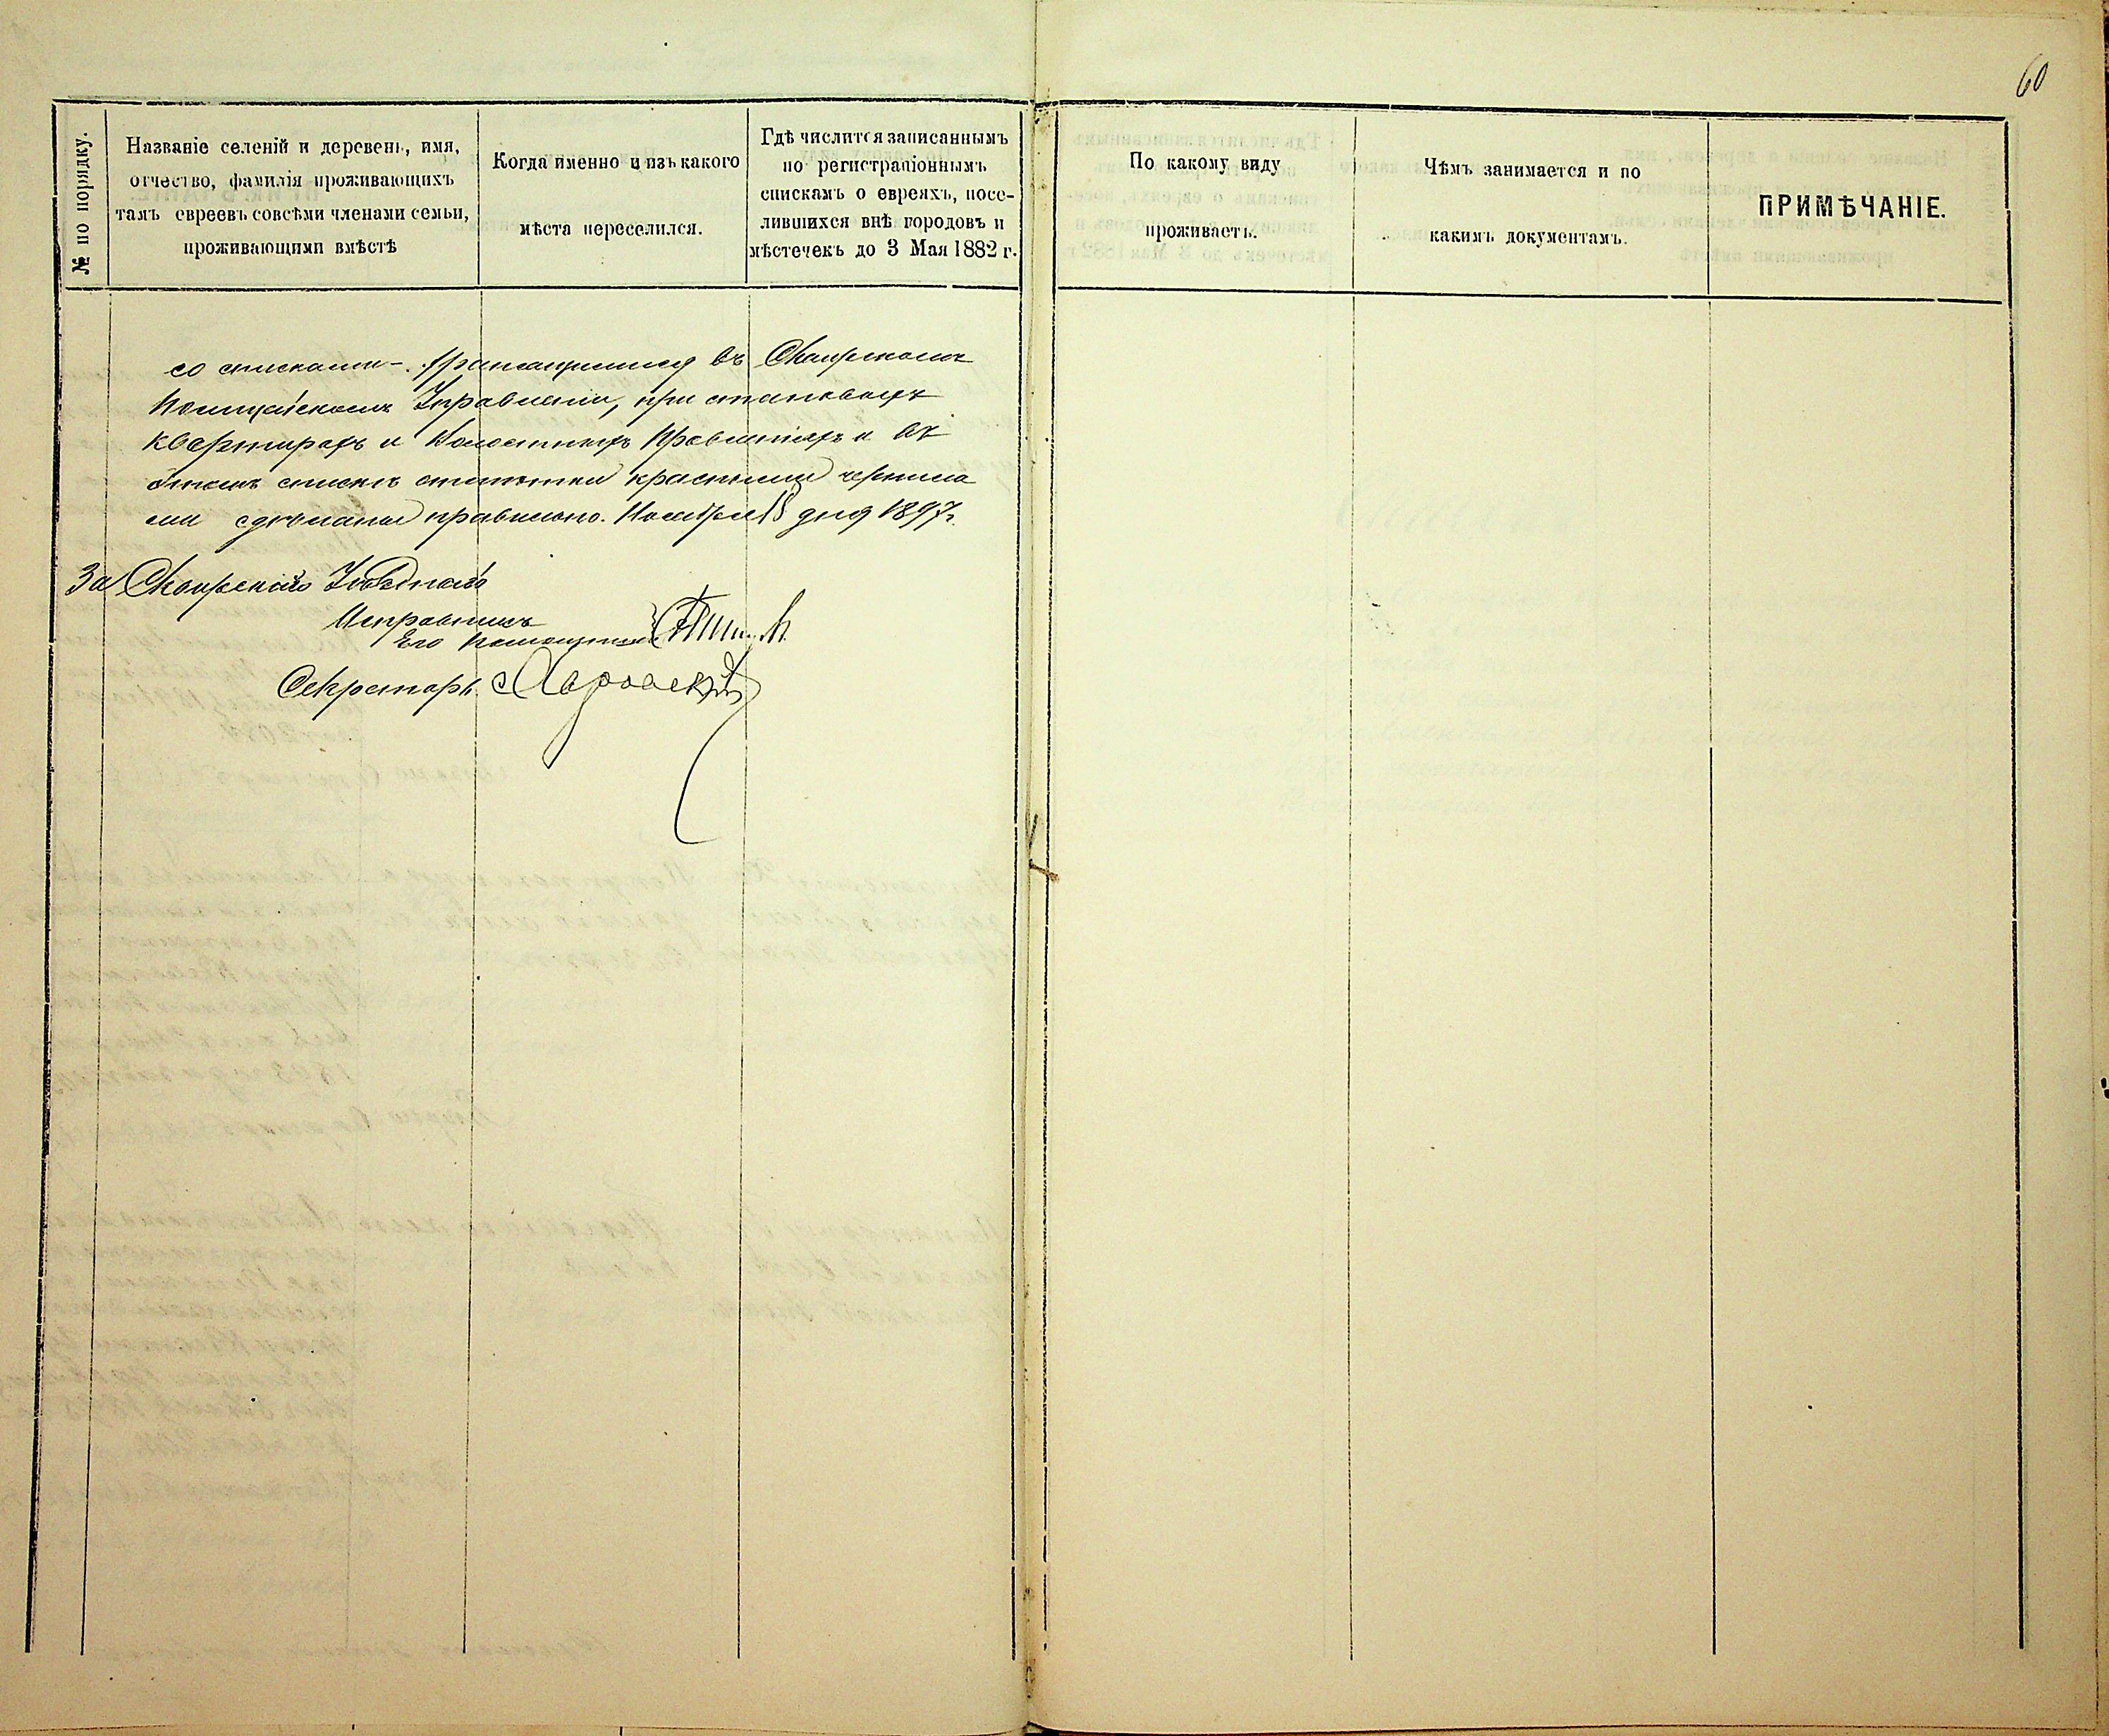 60
№ по порядку.
Названіе селеній и деревень, имя,
отчество, фамилія проживающихъ
тамъ евреевъ совсѣми членами семьи,
проживающими вмѣстѣ
Когда именно и изъ какого
мѣста переселился.
Гдѣ числится записаннымъ
по регистраціоннымъ
спискамъ о евреяхъ, посе-
лившихся внѣ городовъ и
мѣстечекъ до 3 Мая 1882 г.
По какому виду
проживаетъ.
Чѣмъ занимается и по
какимъ документамъ.
ПРИМѢЧАНІЕ.
со списками, хранящимися въ Сквирскомъ
Полицейскомъ Управленіи, при становыхъ
квартирахъ и Волостныхъ Правленіяхъ и въ
этомъ спискѣ отмѣтки красными чернила
ми сдѣланы правильно. Ноября 18 дня 1897 г.
За Сквирскаго Уѣзднаго
Исправника
Его Помощникъ
Секретарь